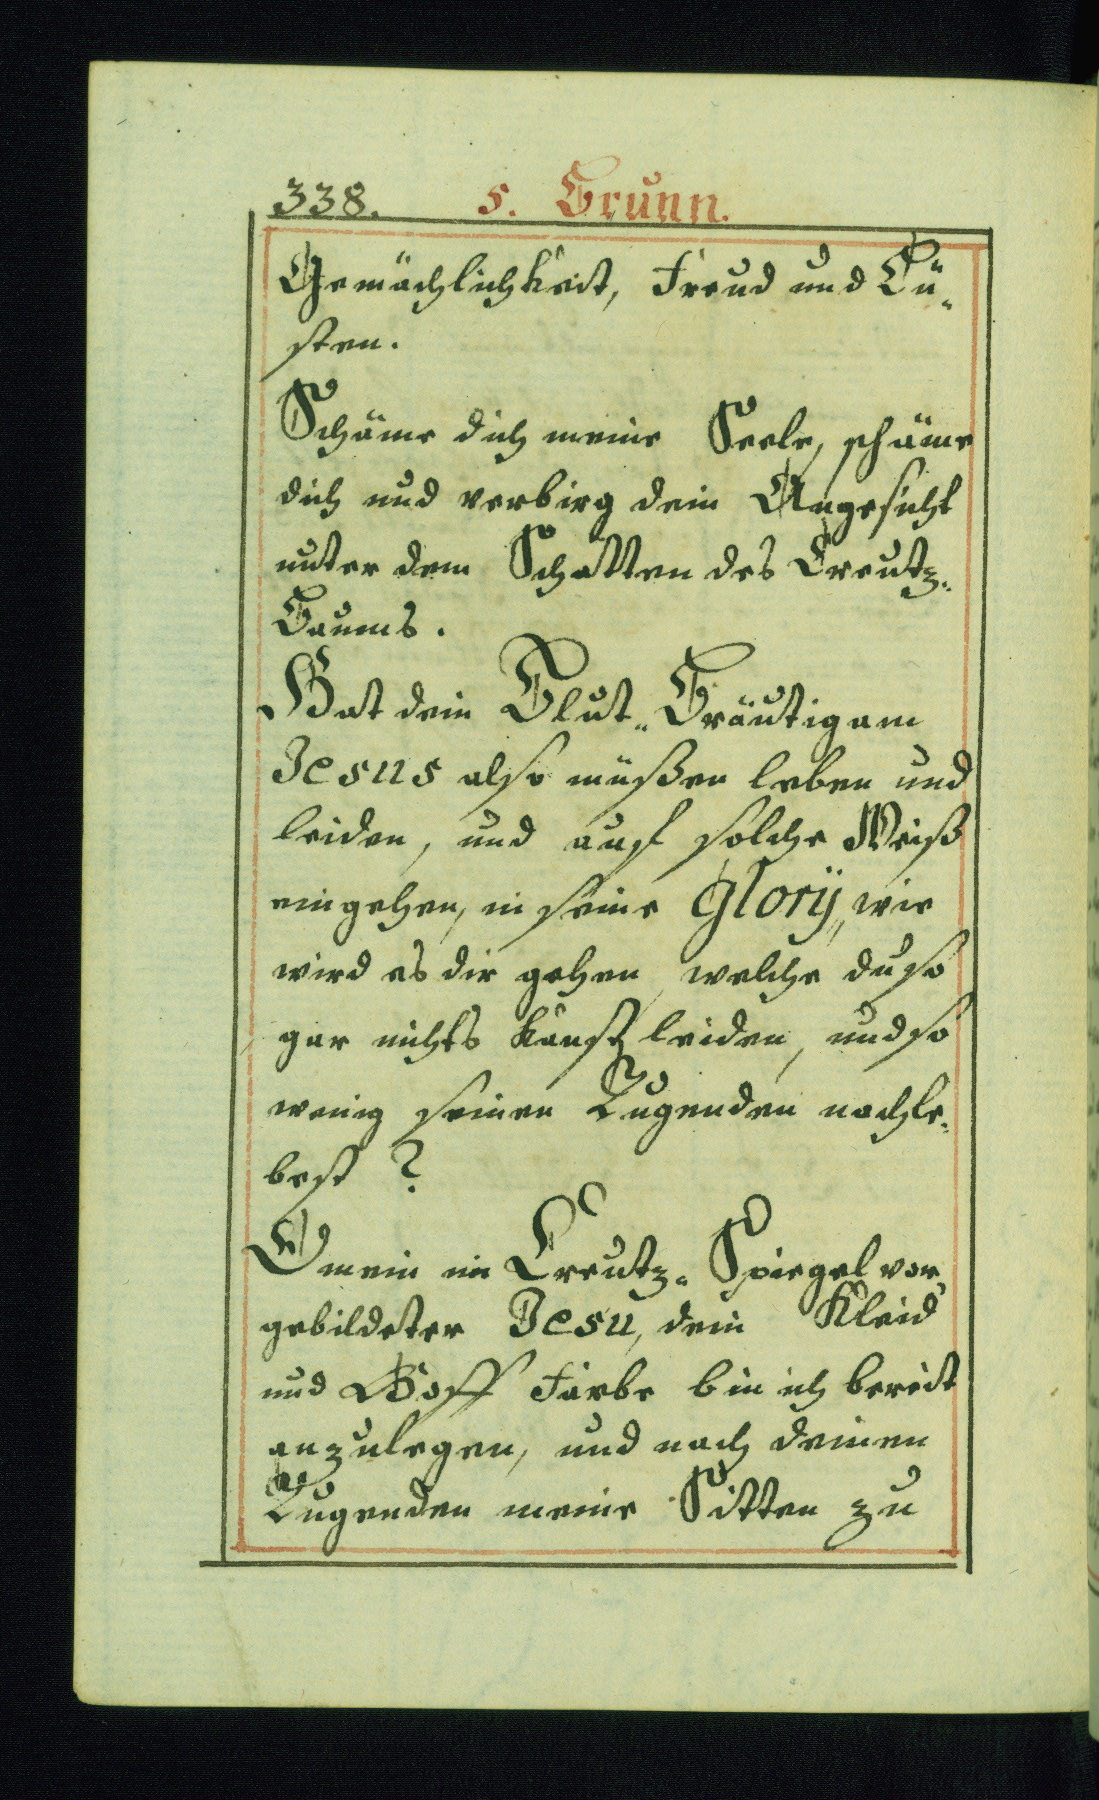 338. 5. Brunn.
Gemächlichkeit, Freud und Lü„
sten.
Schäme dich meine Seele, schäme
dich und verbirg dein Angesicht
unter dem Schatten des Creutz„
Baums.
Hat dein Blut„ Bräutigam
Jesus also müßen leben und
leiden, und auf solche Weiß
eingehen, in seine Glorÿ, wie
wird es dir gehen, welche du so
gar nichts kanst leiden, und so
wenig seinen Tugenden nachle„
best?
O mein im Creutz„ Spiegel vor„
gebildeter Jesu, dein Kleid
und Hoff Farbe bin ich bereit
anzulegen, und nach deinen
Tugenden meine Sitten zu